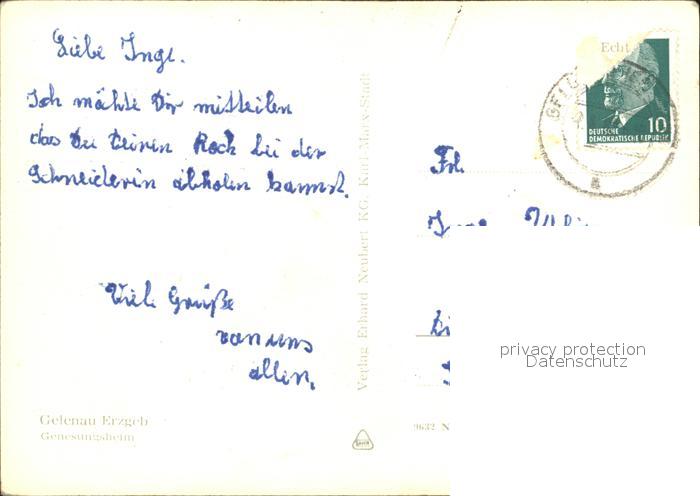 Liebe Inge.
Ich möchte Dir mitteilen
das Du Deinen Rock bei der
Schneiderin abholen kannst.
Viele Grüße
von uns
allen.
Gelenau Erzgeb
Genesungsheim
Verlag Erhard Neubert KG, Karl-Marx-Stadt
9632 N
Echt
10
DEUTSCHE
DEMOKRATISCHE REPUBLIK
Frl.
privacy protection
Datenschutz